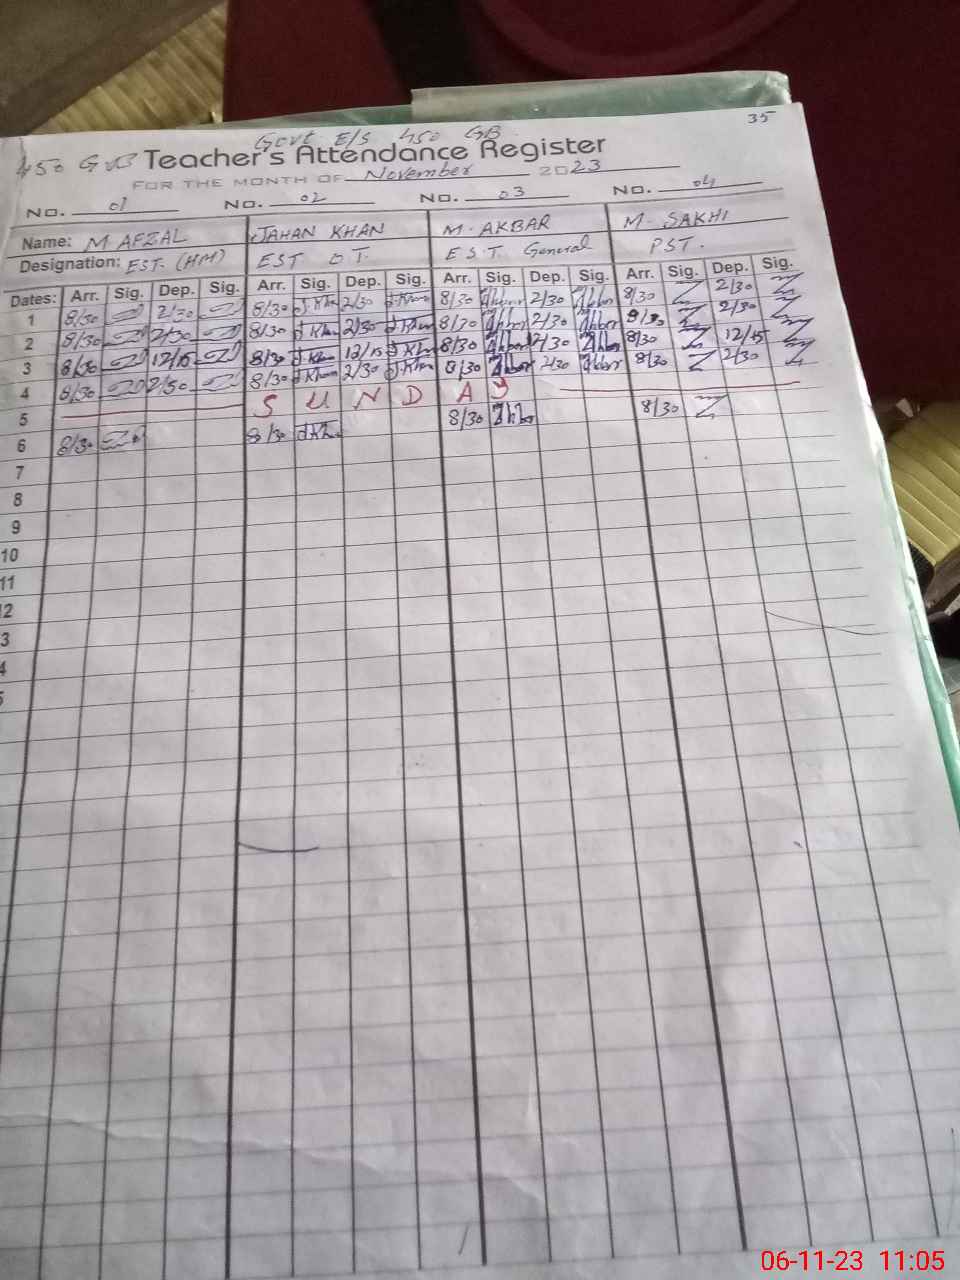 35
Govt E/S 450 GB
450 GB Teacher's Attendance Register
FOR THE MONTH OF November 2023
No. 01 No. 02 No. 03 No. 04
Name: M AFZAL JAHAN KHAN M. AKBAR M. SAKHI
Designation: EST. (HM) EST D T. E S.T. General PST.
Dates: Arr. Sig. Dep. Sig. Arr. Sig. Dep. Sig. Arr. Sig. Dep. Sig. Arr. Sig. Dep. Sig.
1 8/30 2/30 8/30 J.Khan 2/30 J.Khan 8/30 Akbar 2/30 Akbar 8/30 2/30
2 8/30 2/30 8/30 J.Khan 2/30 J.Khan 8/30 Akbar 2/30 Akbar 8/30 2/30
3 8/30 12/15 8/30 J.Khan 12/15 J.Khan 8/30 Akbar 12/30 Akbar 8/30 12/15
4 8/30 2/30 8/30 J.Khan 2/30 J.Khan 8/30 Akbar 2/30 Akbar 8/30 2/30
5 S U N D A Y
6 8/30 8/30 J.Khan 8/30 Akbar 8/30
7
8
9
10
11
2
3
4
5
06-11-23 11:05